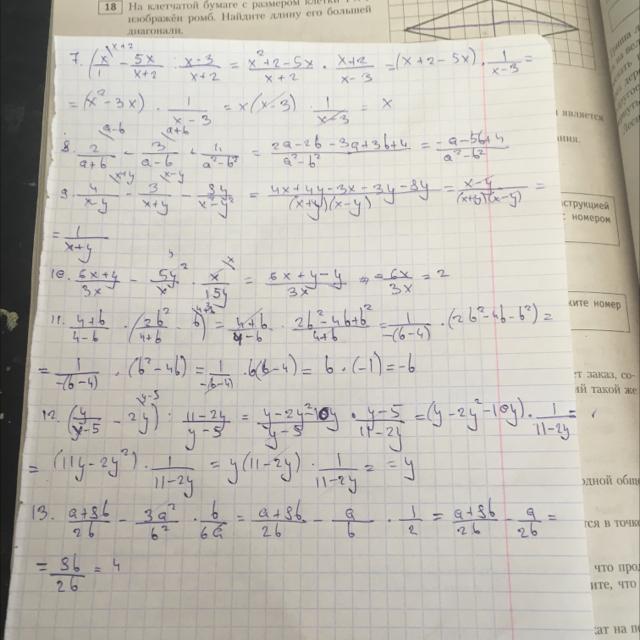 18 На клетчатой бумаге с размером клетки 1×1
изображён ромб. Найдите длину его большей
диагонали.
7. (x/1 - 5x/(x+2)) : (x-3)/(x+2) = (x²+2-5x)/(x+2) · (x+2)/(x-3) = (x+2-5x) · 1/(x-3) =
= (x²-3x) · 1/(x-3) = x(x-3) · 1/(x-3) = x
8. 2/(a+b) - 3/(a-b) + 4/(a²-b²) = (2a-2b-3a+3b+4)/(a²-b²) = (-a-5b+4)/(a²-b²)
9. 4/(x-y) - 3/(x+y) - 8y/(x²-y²) = (4x+4y-3x-3y-8y)/((x+y)(x-y)) = (x-y)/((x+y)(x-y)) =
= 1/(x+y)
10. (6x+y)/3x - 5y²/x² · x/15y = (6x+y-y)/3x = 6x/3x = 2
11. (4+b)/(4-b) · (2b²/(4+b) - b) = (4+b)/(4-b) · (2b²-4b+b²)/(4+b) = 1/(-(b-4)) · (2b²-4b-b²) =
= 1/(-(b-4)) · (b²-4b) = 1/(-(b-4)) · b(b-4) = b · (-1) = -b
12. (y/(y-5) - 2y) : (11-2y)/(y-5) = (y-2y²-10y)/(y-5) · (y-5)/(11-2y) = (y-2y²-10y) · 1/(11-2y) =
= (11y-2y²) · 1/(11-2y) = y(11-2y) · 1/(11-2y) = = y
13. (a+8b)/2b - 3a²/b² · b/6a = (a+8b)/2b - a/b · 1/2 = (a+8b)/2b - a/2b =
= 8b/2b = 4
является
номером
номер
ет заказ, со-
такой же
в точк
что про
ите, что